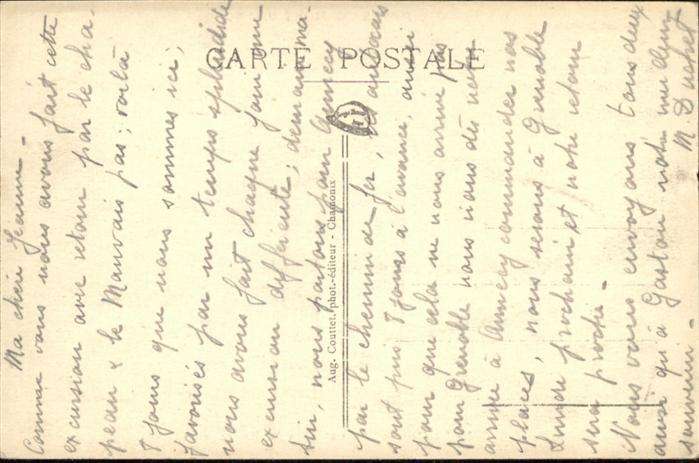 CARTE POSTALE
Aug. Couttet, phot.-éditeur - Chamonix
Ma chère Jeanne -
Comme vous nous avons fait cette
excursion avec retour par le cha-
peau & le Mauvais pas; voilà
8 jours que nous sommes ici,
favorisés par un temps splendide
nous avons fait chaque jour une
excursion différente; demain ma-
tin, nous partons pour Annecy
par le chemin de fer, les autocars
sont pris 8 jours à l'avance, aussi
pour que cela ne nous arrive pas
pour Grenoble nous irons dès notre
arrivée à Annecy commander nos
places, nous serons à Grenoble
Lundi prochain et notre retour
sera proche -
Nous vous envoyons tous deux
ainsi qu'à Gaston notre meilleur
souvenir -
M